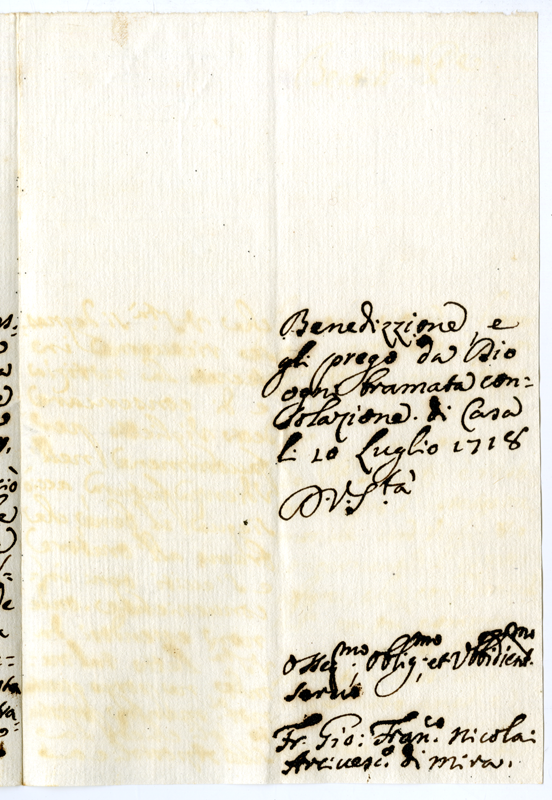 Benedizzione, e
gli prego da Dio
ogni bramata con=
solazione. di Casa
li 10 Luglio 1718
D. V. S.tà
Osseq.mo Oblig.mo et Vbbidient.mo
seruo
Fr. Gio: Fran.co Nicolai
Arciuesc.o di Mira.